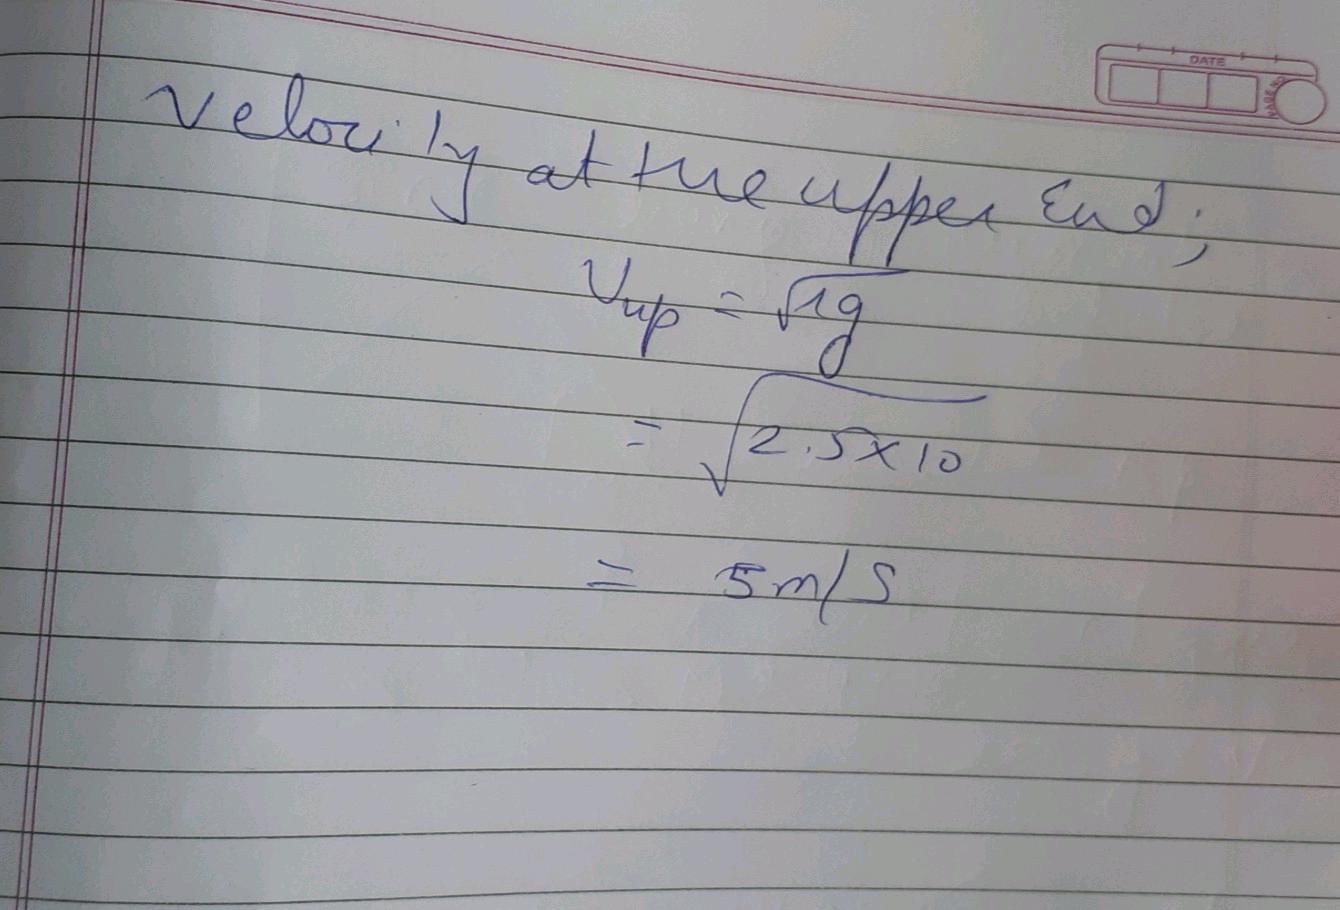 DATE
PAGE NO
Velocity at the upper End;
Vup = √rg
= √2.5×10
= 5m/S